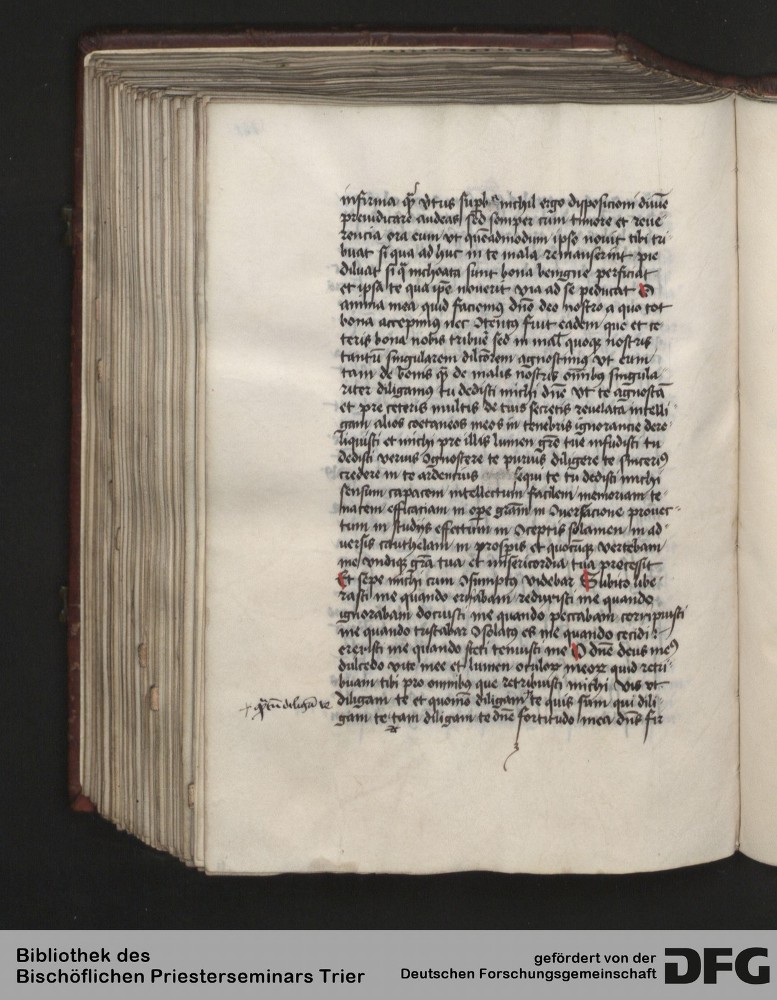 infirma qꝫ vtus supb9 nichil ergo disposicioni diuīe
preiudicare audeas sed semper cum timore et reue
rencia ora eum vt quēadmodum ipse nouit tibi tri
buat si qua ad huc in te mala remanserint pie
diluat si q̄ inchoata sunt bona benigne perficiat
et ipsa te qua ip̄e nouerit via ad se perducat O
anima mea quid faciemus dn̄o deo nostro a quo tot
bona accepimus nec ɔtentus fuit eadem que et ce
teris bona nobis tribue sed in mal quoque nostris
tantū singularem dilcōrem agnoscimus vt eum
tam de bonis qꝫ de malis nostris om̄ibus singula
riter diligamus tu dedisti michi dn̄e vt te agnoscā
et pre ceteris multis de tuis secretis reuelata intelli
gam alios coetaneos meos in tenebris ignorancie dere
liquisti et michi pre illis lumen grē tue infudisti tu
dedisti verius ɔgnoscere te purius diligere te sincerius
credere in te ardencius sequi te tu dedisti michi
sensum capacem intellectum facilem memoriam te
nacem efficaciam in ope gram in ɔuersacione prouec
tum in studijs effectum in ɔceptis solamen in ad
uersis cauthelam in prospis et quocūqꝫ vertebam
me vndiqꝫ grā tua et misericordia tua precessit
Et sepe michi cum ɔsumptus videbar Subito libe
rasti me quando errabam reduxisti me quando
ignorabam docuisti me quando peccabam corripuisti
me quando tristabar ɔsolatus es me quando cecidi
erexisti me quando steti tenuisti me O dn̄e deus meus
dulcedo vite mee et lumen oculoꝝ meoꝝ quid retri
buam tibi pro omnibus que retribuisti michi vis vt
diligam te et quomō diligam te quis sum qui dili
gam te tam diligam te dn̄e fortitudo mea dn̄s fir
Bibliothek des
Bischöflichen Priesterseminars Trier
gefördert von der
Deutschen Forschungsgemeinschaft
DFG